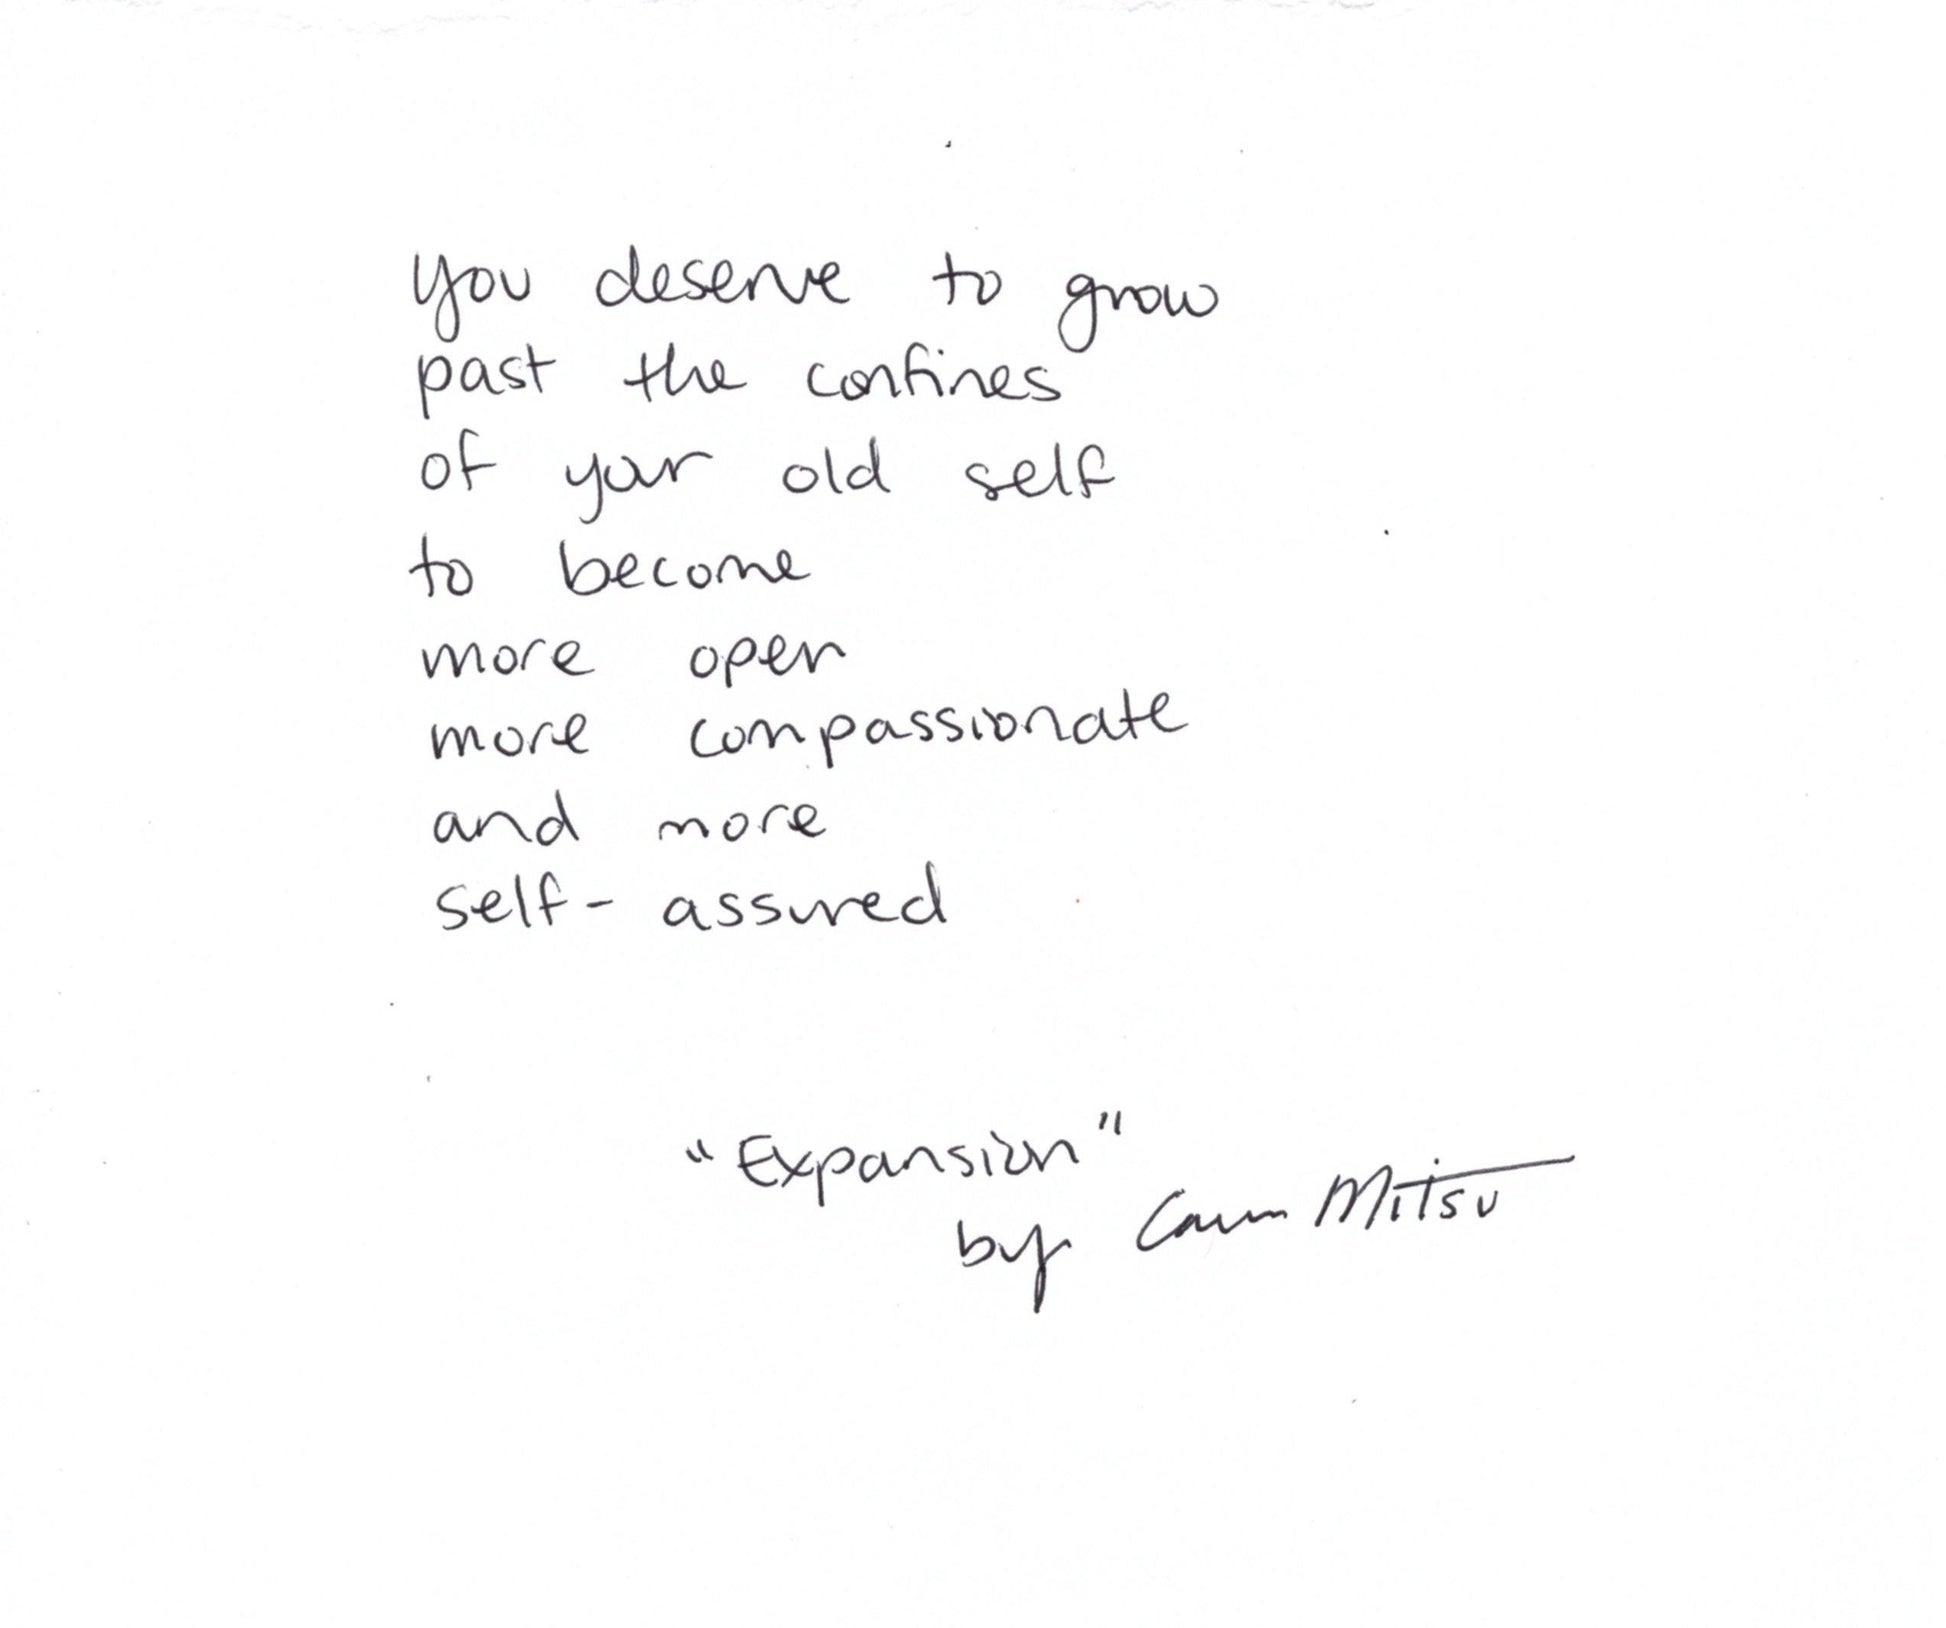 you deserve to grow
past the confines
of your old self
to become
more open
more compassionate
and more
self-assured
"Expansion"
by Mitsu